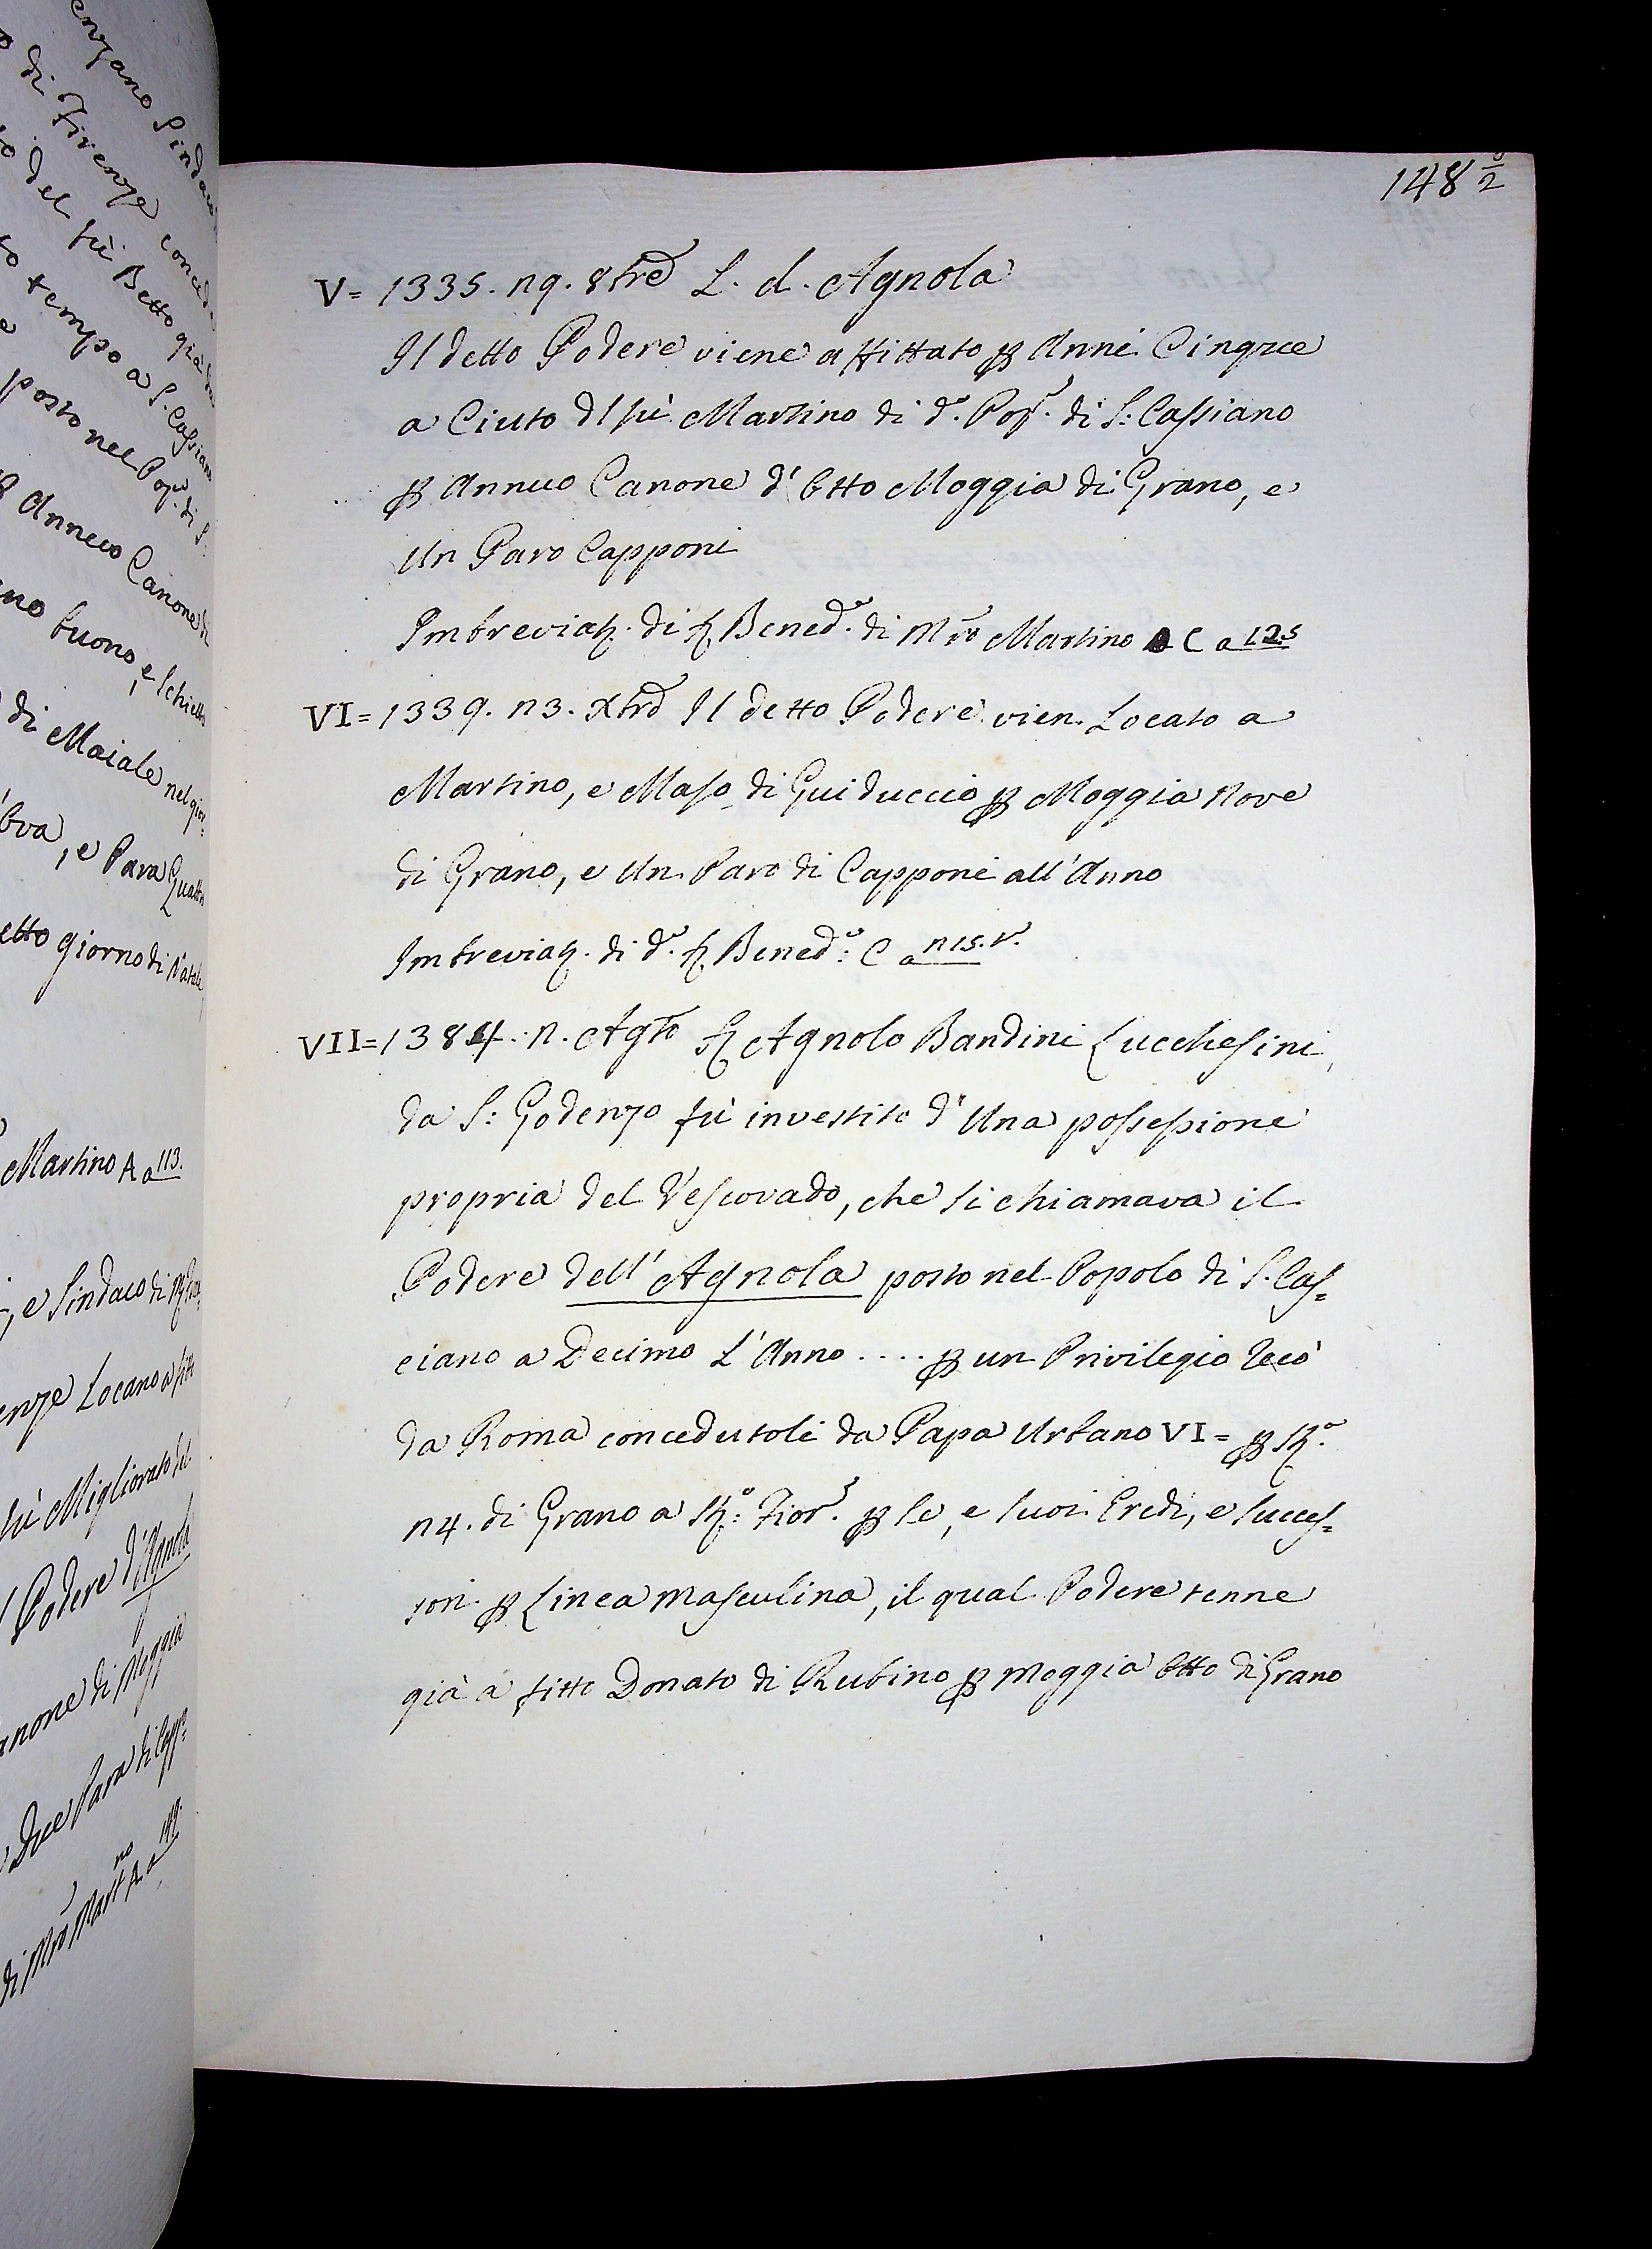 enzano Sindaco
di Firenze concede
del fù Betto già
tempo a S. Cassiano
posto nel Pop.º di S.
Annuo Canone di
buono, e schietto
di Maiale nel gior=
, e Para Quattro
etto giorno di Natale
Martino A a 113.
, e Sindaco di
enze Locano a fitto
fù Migliorato del
Podere d'Agnola
anone di Moggia
Due Para di Capp:
di Mro Martno A a 149.
148 ½
V= 1335. n9. 8bre L. d. Agnola
Il detto Podere viene affittato ꝑ Anni Cinque
a Ciuto dl fù Martino di d.º Pop.º di S: Cassiano
ꝑ Annuo Canone d' Otto Moggia di Grano, e
Un Paro Capponi
Imbreviaz. di S. Bened.º di Mro Martino C a 125
VI= 1339. n3. Xbre Il detto Podere vien Locato a
Martino, e Maso di Guiduccio ꝑ Moggia Nove
di Grano, e Un Paro di Capponi all' Anno
Imbreviaz. di d.º S. Bened.º: C a n15. v.
VII= 1384. n. Agto S. Agnolo Bandini Lucchesini,
da S: Godenzo fù investito d' Una possessione
propria del Vescovado, che si chiamava il
Podere dell' Agnola posto nel Popolo di S. Cas=
ciano a Decimo L' Anno .... ꝑ un Privilegio Recò
da Roma concedutoli da Papa Urbano VI= ꝑ St.º
n4. di Grano a St.º: Fior.º ꝑ Se, e suoi Eredi, e Succes=
sori ꝑ Linea Masculina, il qual Podere tenne
già a fitto Donato di Rubino ꝑ Moggia Otto di Grano